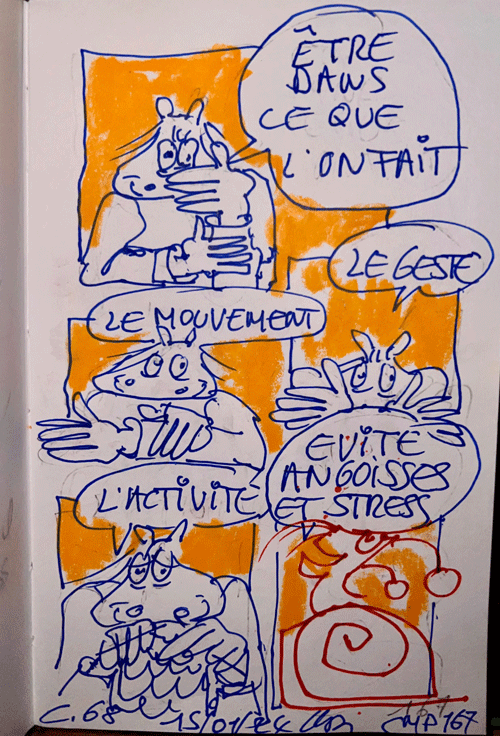 ÊTRE
DANS
CE QUE
L'ON FAIT
LE GESTE
LE MOUVEMENT
EVITE
ANGOISSES
ET STRESS
L'ACTIVITE
C. 68 15/01/24 167